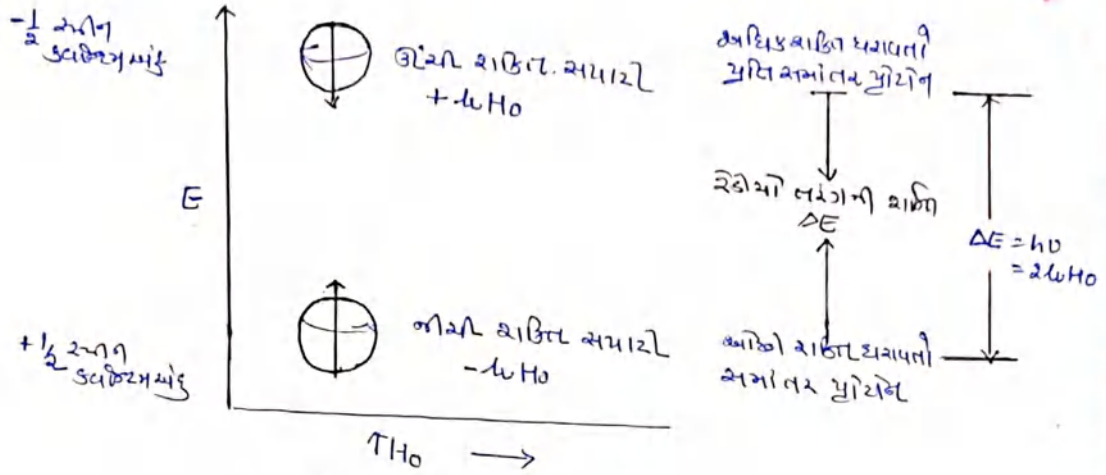 -1/2 સ્પીન
ક્વોન્ટમ આંક
ઊંચી શક્તિ સપાટી
+μH₀
અધિક શક્તિ ધરાવતો
પ્રતિ સમાંતર પ્રોટોન
E
રેડીયો તરંગની શક્તિ
ΔE
ΔE = hυ
= 2μH₀
+1/2 સ્પીન
ક્વોન્ટમ આંક
નીચી શક્તિ સપાટી
-μH₀
ઓછી શક્તિ ધરાવતો
સમાંતર પ્રોટોન
↑H₀ →